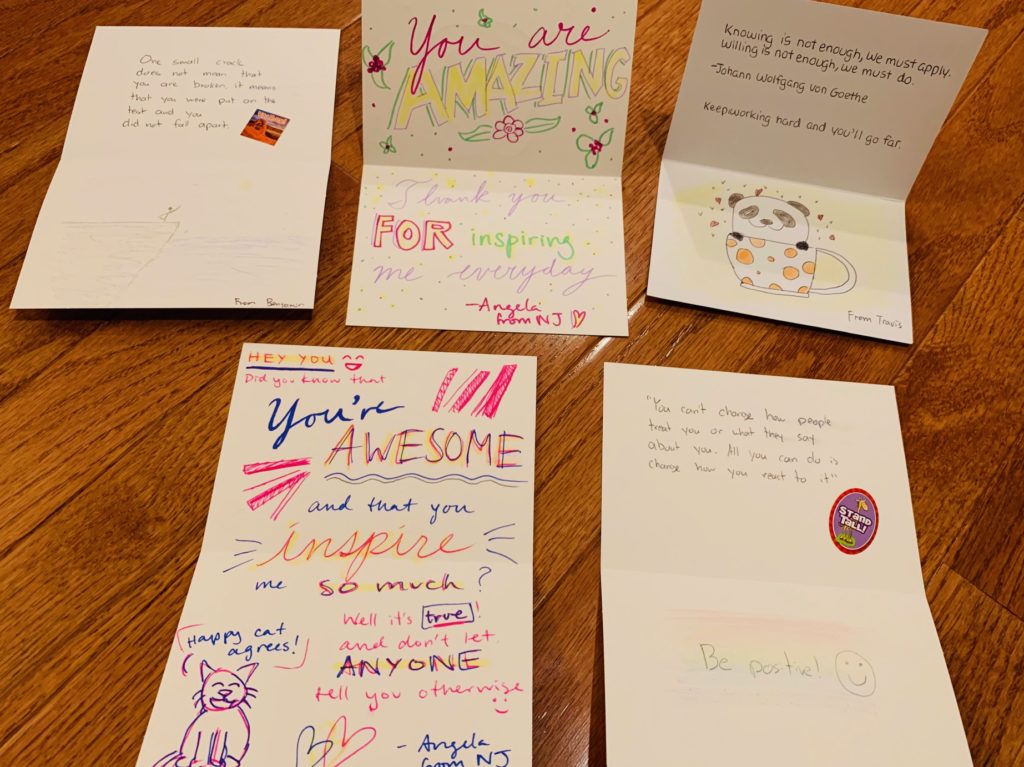 One small crack
does not mean that
you are broken, it means
that you were put on the
test and you
did not fall apart.
From Benjamin
You are
AMAZING
Thank you
FOR inspiring
me everyday
-Angela
from NJ
Knowing is not enough, we must apply.
Willing is not enough, we must do.
-Johann Wolfgang von Goethe
Keep working hard and you'll go far.
From Travis
HEY YOU
Did you know that
You're
AWESOME
and that you
inspire
me so much?
Well it's true!
and don't let
ANYONE
tell you otherwise
Happy cat
agrees!
- Angela
from NJ
"You can't change how people
treat you or what they say
about you. All you can do is
change how you react to it"
STAND
TALL!
Be postive!